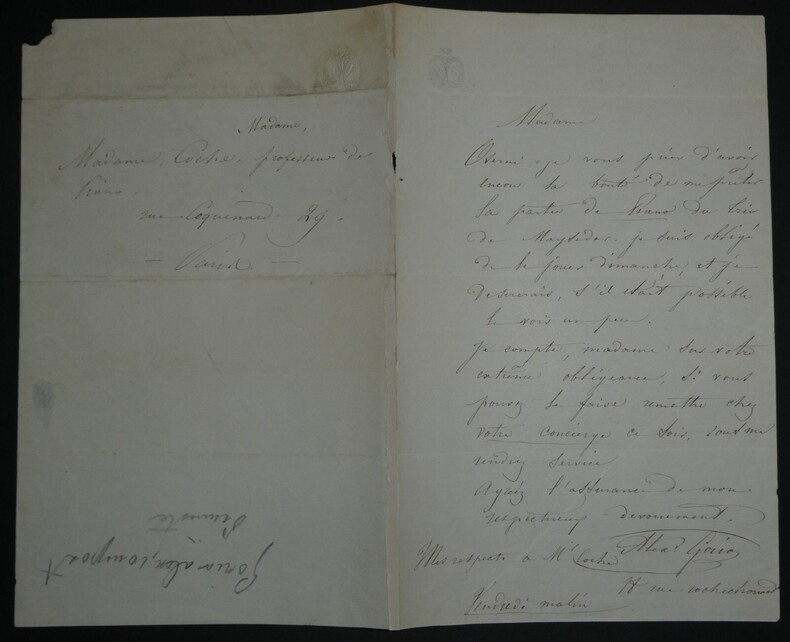 Madame,
Madame Coche professeur de
Piano.
rue Coquenard. 29.
— Paris —
Goria alex, compos
Pianiste
Madame
Oserai-je vous prier d'avoir
encore la bonté de me prêter
la partie de Piano du trio
de Mayseder. je suis obligé
de le jouer dimanche, et je
desirerais, s'il était possible
le voir un peu.
Je compte, madame sur votre
extrême obligeance, si vous
pouvez le faire remettre chez
votre concierge ce soir, vous me
rendrez service
Agréez l'assurance de mon
respectueux dévouement.
Alex. Goria
Mes respects a Mr Coche
rue rochechouart
Vendredi matin